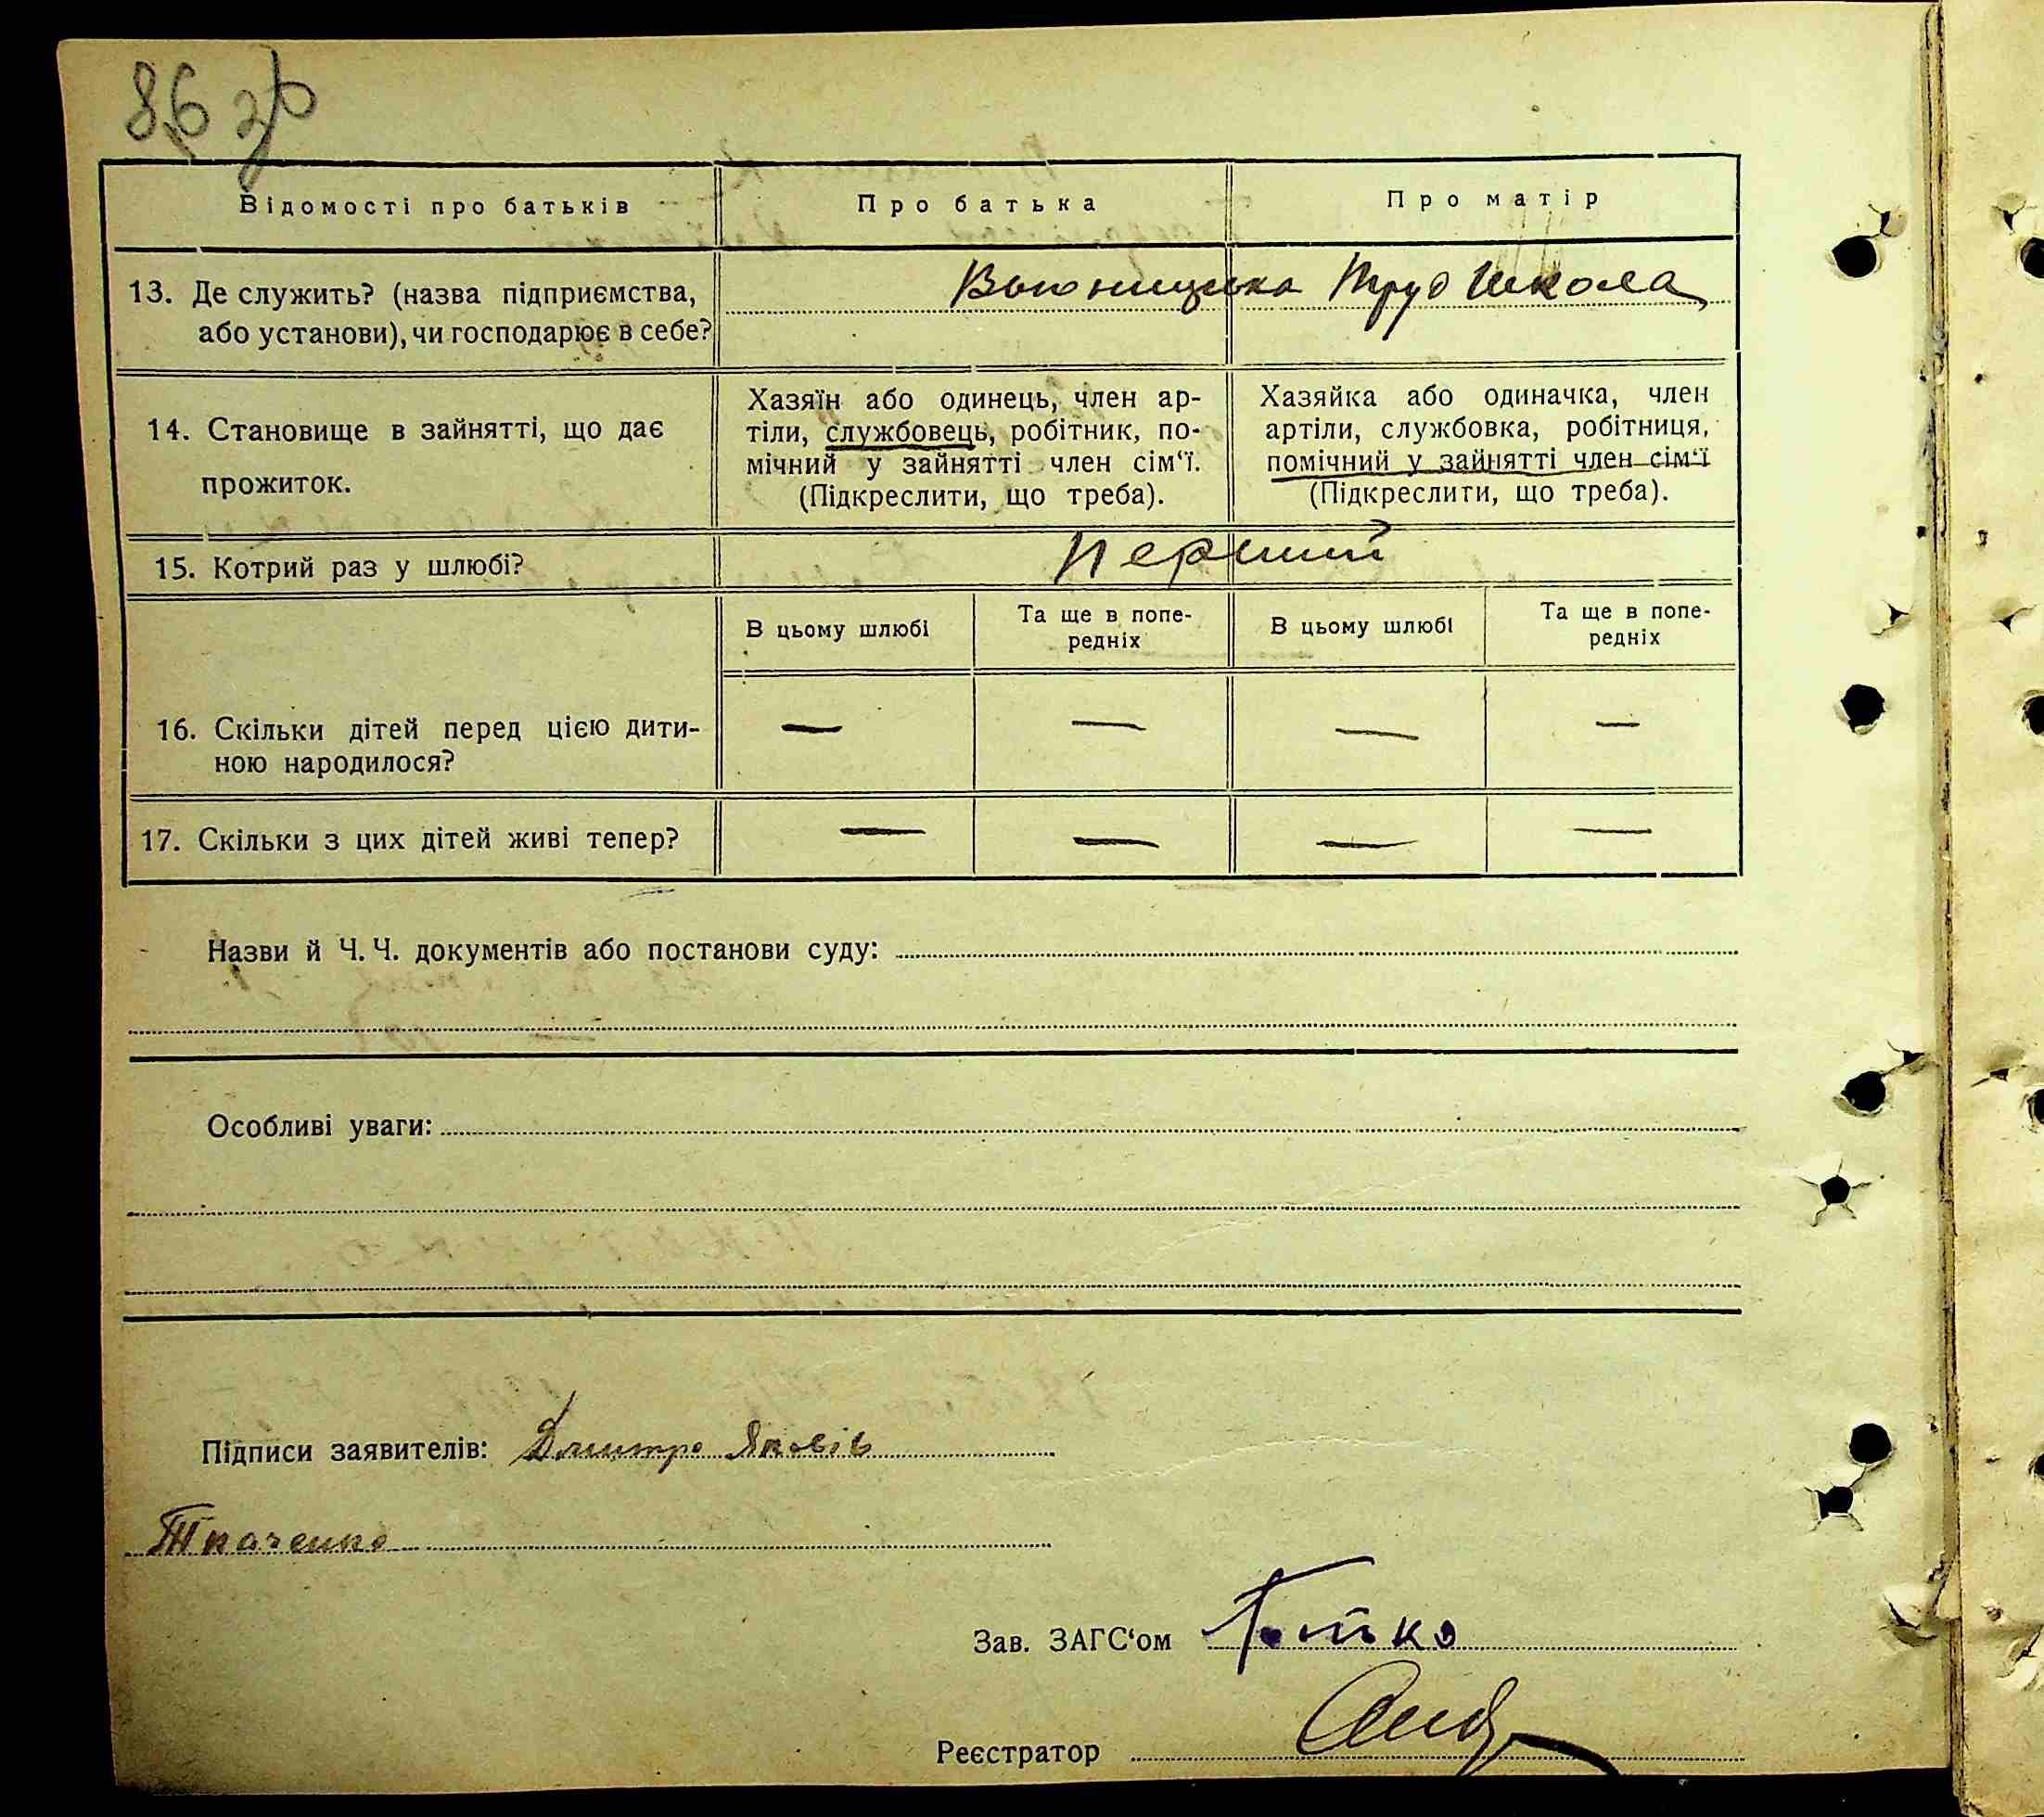 86 зв
Відомості про батьків
Про батька
Про матір
13. Де служить? (назва підприємства,
або установи), чи господарює в себе?
Труд Школа
14. Становище в зайнятті, що дає
прожиток.
Хазяїн або одинець, член ар-
тіли, службовець, робітник, по-
мічний у зайнятті член сім‘ї.
(Підкреслити, що треба).
Хазяйка або одиначка, член
артіли, службовка, робітниця,
помічний у зайнятті член сім‘ї
(Підкреслити, що треба).
15. Котрий раз у шлюбі?
Перший
В цьому шлюбі
Та ще в попе-
редніх
В цьому шлюбі
Та ще в попе-
редніх
16. Скільки дітей перед цією дити-
ною народилося?
— — — —
17. Скільки з цих дітей живі тепер?
— — — —
Назви й Ч. Ч. документів або постанови суду:
Особливі уваги:
Підписи заявителів: Дмитро Яковів
Ткаченко
Зав. ЗАГС‘ом
Реєстратор